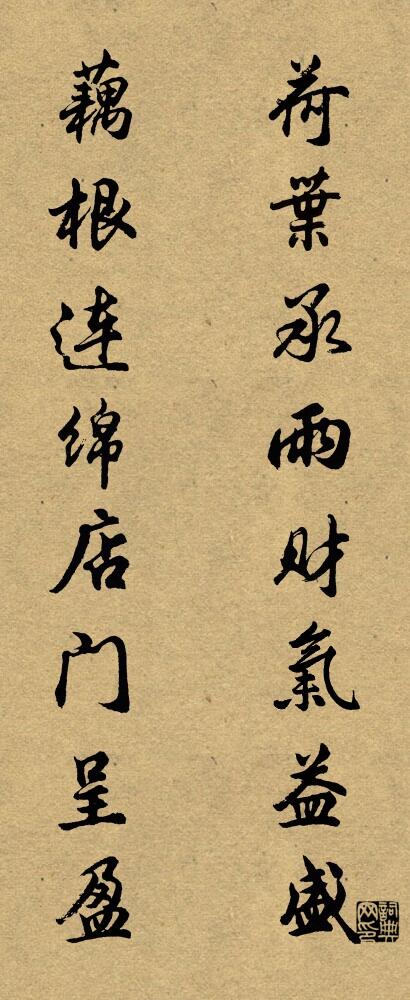 荷葉承雨财氣益盛
藕根连绵店门呈盈
詞典网印